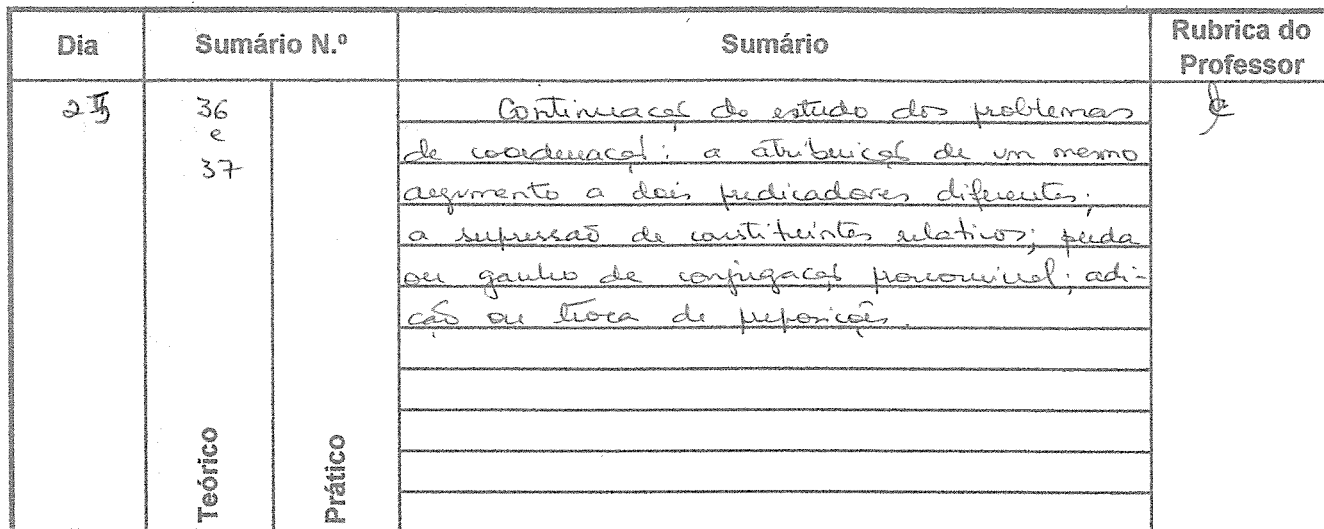 Dia Sumário N.º Sumário Rubrica do Professor
36
e
37
Continuação do estudo dos problemas
de coordenação: a atribuição de um mesmo
argumento a dois predicadores diferentes;
a supressão de constituintes relativos; perda
ou ganho de conjugação pronominal; adi-
ção ou troca de preposições.
Teórico
Prático